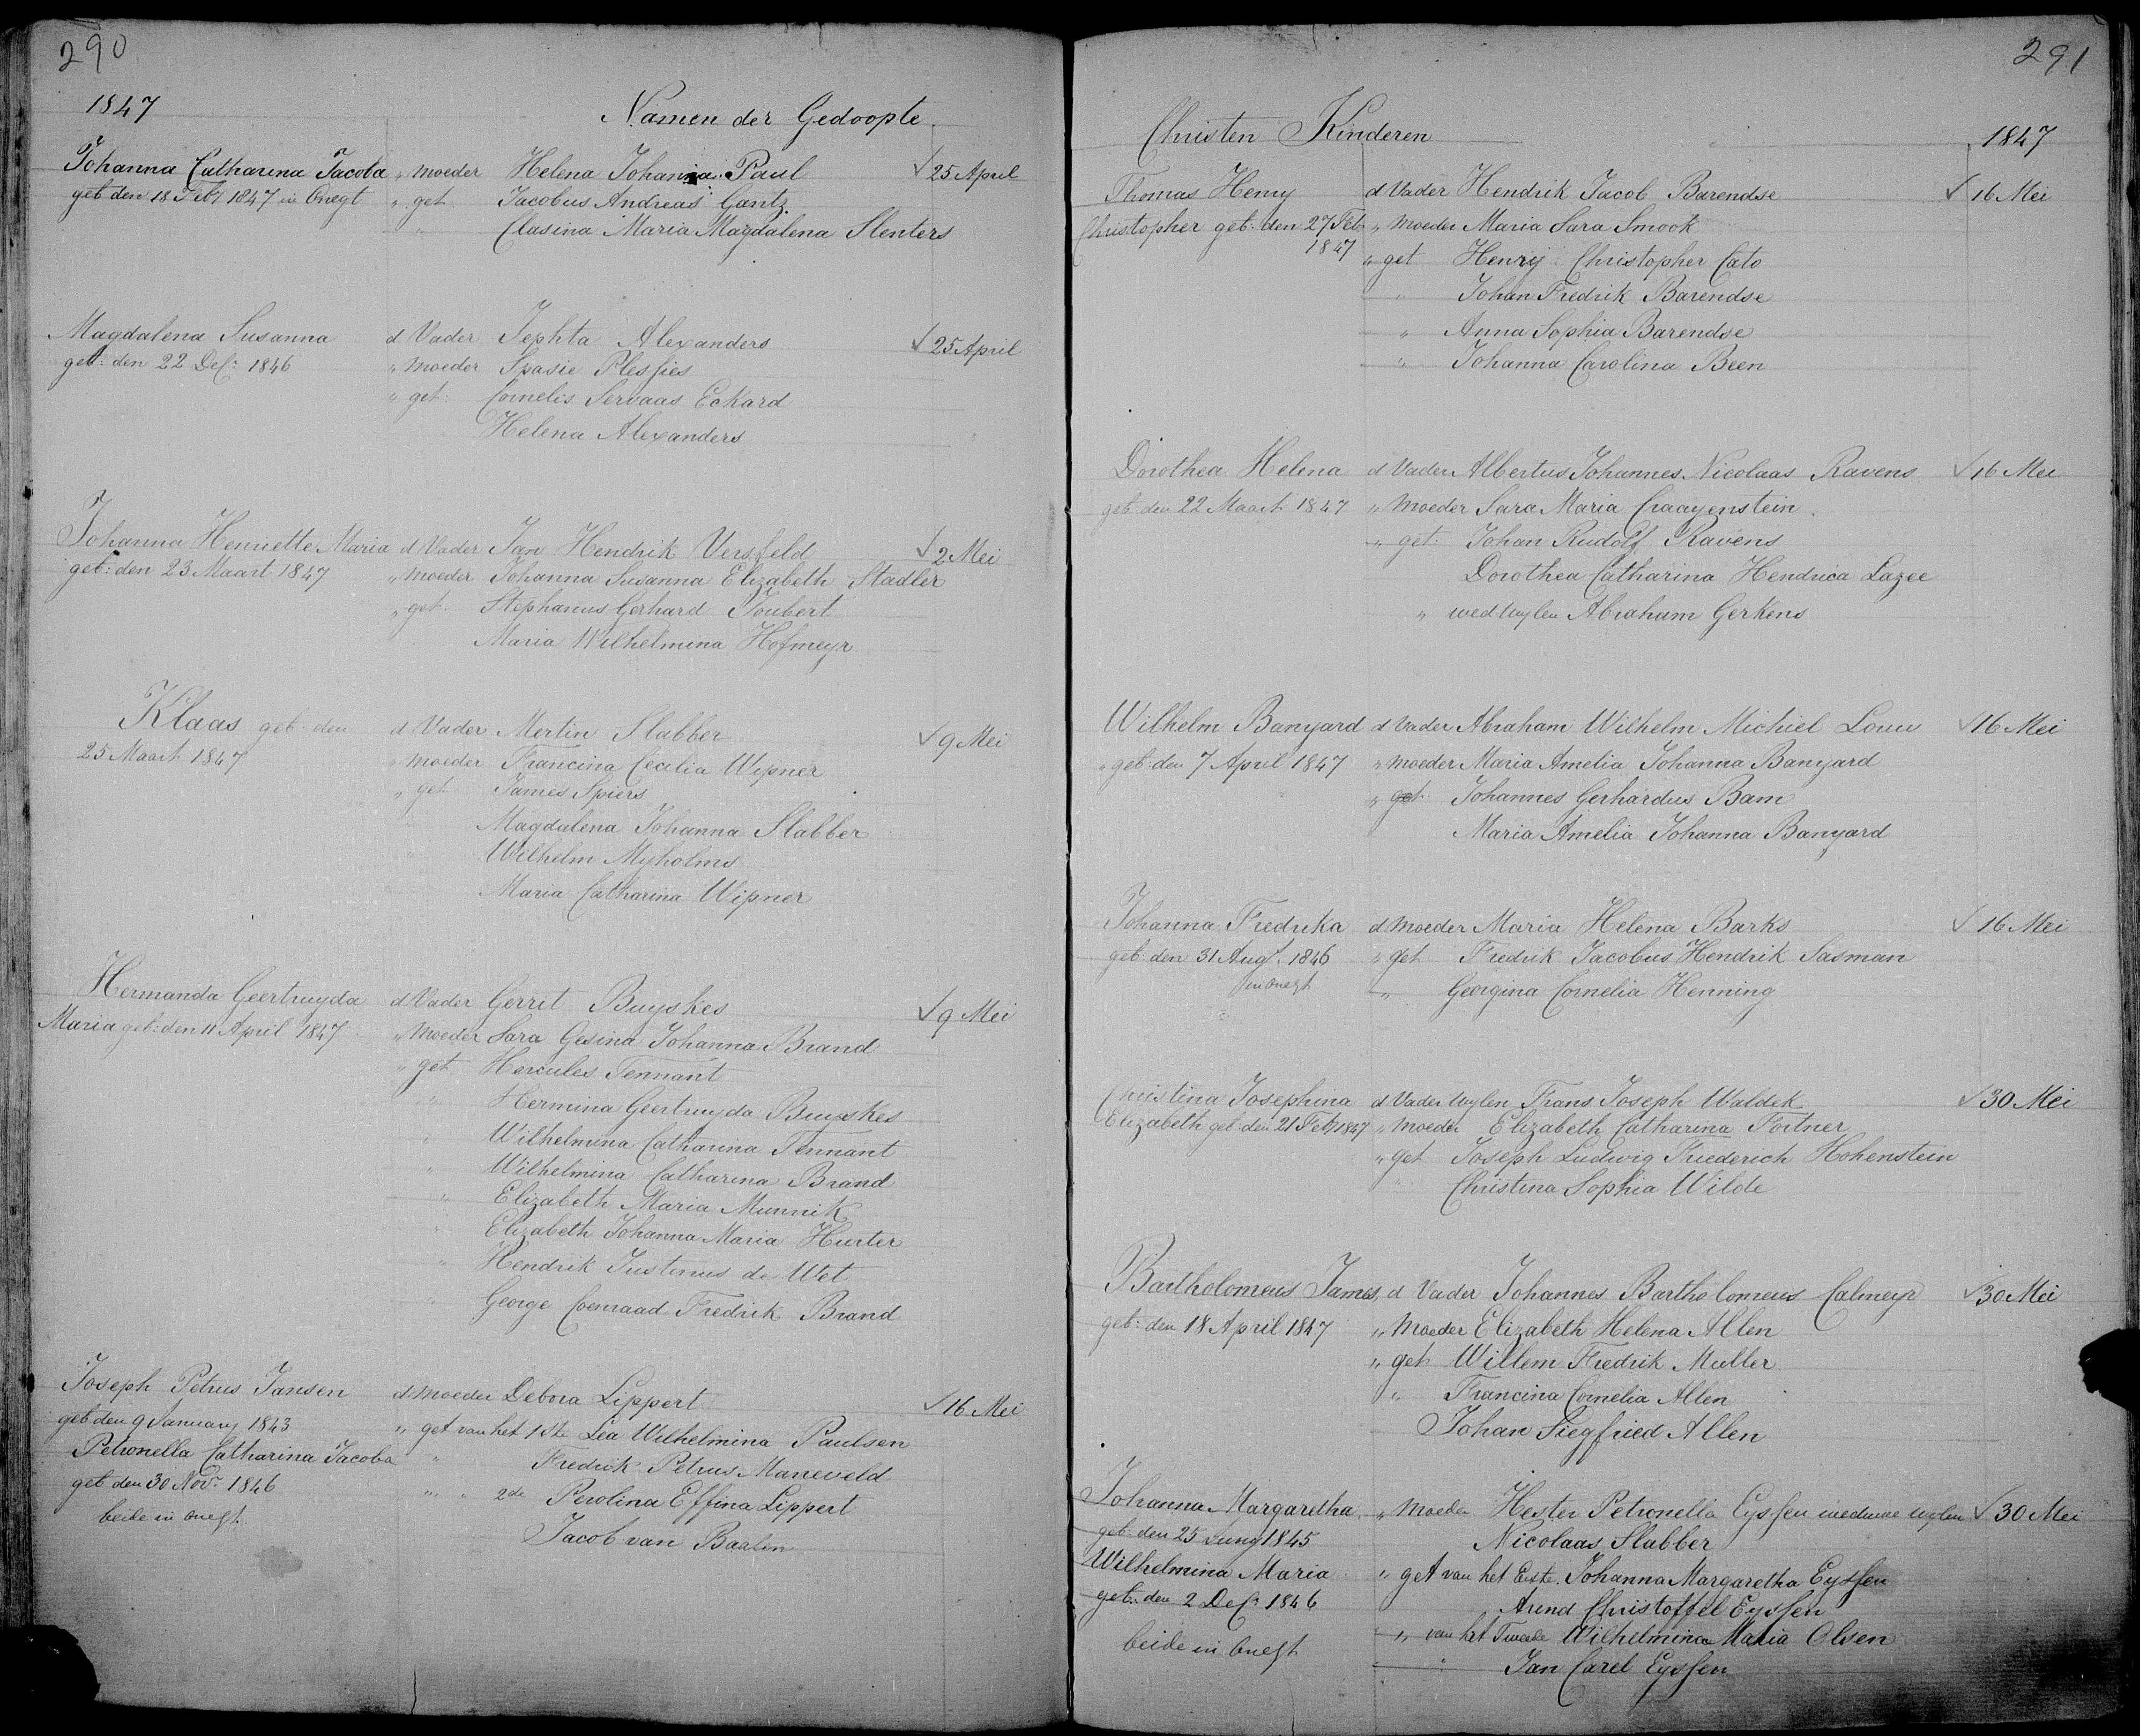 290
1847
Namen der Gedoopte
Johanna Catharina Jacoba " moeder Helena Johanna Paul √ 25 April
geb den 18 Feby 1847 in Onegt " get. Jacobus Andreas Gantz
" Clasina Maria Magdalena Slenters
Magdalena Susanna d Vader Jephta Alexanders √ 25 April
geb: den 22 Decr 1846 " Moeder Spasie Plesjies
" get. Cornelis Servaas Eckard
Helena Alexanders
Johanna Henriette Maria d Vader Jan Hendrik Versfeld √ 2 Mei
geb: den 23 Maart 1847 " Moeder Johanna Susanna Elizabeth Stadler
" get. Stephanus Gerhard Joubert
Maria Wilhelmina Hofmeyr
Klaas geb: den d Vader Mertin Slabber √ 9 Mei
25 Maart 1847 " moeder Francina Cecilia Wipner
" get. James Spiers
Magdalena Johanna Slabber
" Wilhelm Myholms
Maria Catharina Wipner
Hermanda Geertruyda d Vader Gerrit Buyskes √ 9 Mei
Maria geb: den 11 April 1847 " Moeder Sara Gesina Johanna Brand
" get Hercules Tennant
" Hermina Geertruyda Buyskes
" Wilhelmina Catharina Tennant
" Wilhelmina Catharina Brand
" Elizabeth Maria Munnik
" Elizabeth Johanna Maria Hurter
" Hendrik Justinus de Wet
" George Coenraad Fredrik Brand
Joseph Petrus Jansen d. Moeder Debora Lippert √ 16 Mei
geb den 9 January 1843 " get van het 1ste Lea Wilhelmina Paulsen
Petronella Catharina Jacoba " Fredrik Petrus Maneveld
geb den 30 Novr 1846 " " 2de Perolina Effina Lippert
beide in onegt. Jacob van Baalen
291
Christen Kinderen
1847
Thomas Henry d Vader Hendrik Jacob Barendse √ 16 Mei
Christopher geb: den 27 Feb " Moeder Maria Sara Smook
1847 " get Henry Christopher Cato
" Johan Fredrik Barendse
" Anna Sophia Barendse
" Johanna Carolina Been
Dorothea Helena d Vader Albertus Johannes Nicolaas Ravens √ 16 Mei
geb: den 22 Maart 1847 " Moeder Sara Maria Craayenstein
" get. Johan Rudolf Ravens
Dorothea Catharina Hendrica Lazee
" wed Wylen Abraham Gerkens
Wilhelm Banyard d Vader Abraham Wilhelm Michiel Louw √ 16 Mei
" geb: den 7 April 1847 " Moeder Maria Amelia Johanna Banyard
" get. Johannes Gerhardus Bam
Maria Amelia Johanna Banyard
Johanna Fredrika d Moeder Maria Helena Barks √ 16 Mei
geb: den 31 Augt. 1846 " get Fredrik Jacobus Hendrik Sasman
in onegt " Georgina Cornelia Henning
Christina Josephina d Vader Wylen Frans Joseph Waldek √ 30 Mei
Elizabeth geb: den 21 Feby 1847 " Moeder Elizabeth Catharina Fortner
" get Joseph Ludwig Friederich Hohenstein
" Christina Sophia Wilde
Bartholomeus James, d Vader Johannes Bartholomeus Calmeyr √ 30 Mei
geb: den 18 April 1847 " Moeder Elizabeth Helena Allen
" get Willem Fredrik Muller
" Francina Cornelia Allen
Johan Siegfried Allen
Johanna Margaretha " Moeder Hester Petronella Eyssen weduwe wylen √ 30 Mei
geb: den 25 Juny 1845 Nicolaas Slabber
Wilhelmina Maria " get van het Eerste. Johanna Margaretha Eyssen
geb: den 2 Decr 1846 Arend Christoffel Eyssen
beide in onegt " van het Tweede Wilhelmina Maria Olsen
" Jan Carel Eyssen